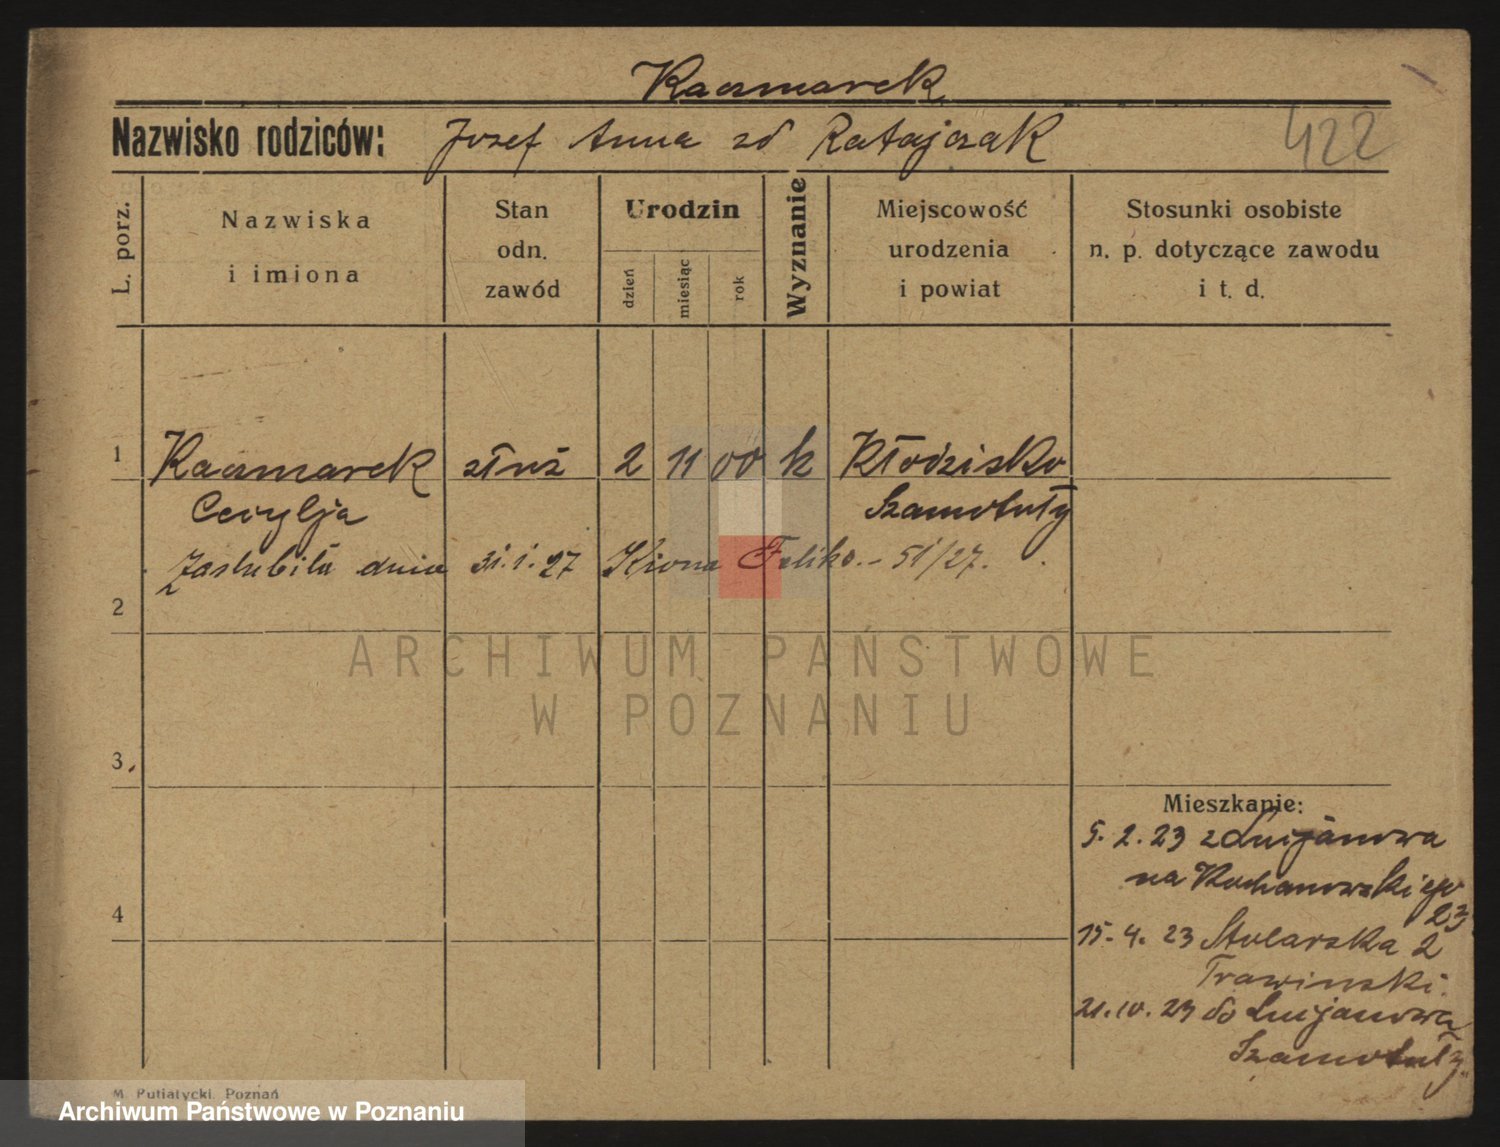 Kaczmarek
Nazwisko rodziców: Jozef Anna zd Ratajczak 422
L. porz.
Nazwiska
i imiona
Stan
odn.
zawód
Urodzin
dzień
miesiąc
rok
Wyznanie
Miejscowość
urodzenia
i powiat
Stosunki osobiste
n. p. dotyczące zawodu
i t. d.
1 Kaczmarek służ 2 11 00 k Kłodzisko
Cecylja Szamotuły
Zaslubiła dnia 31.1.27 Feliks. - 51/27.
2
ARCHIWUM PAŃSTWOWE
W POZNANIU
3
Mieszkanie:
5. 2. 23 z Lucjanowa
na Kochanowskiego
23
4
15. 4. 23 Stolarska 2
Trawinski.
21. 10. 23 do Lucjanowa
Szamotuły
M. Putiatycki, Poznań
Archiwum Państwowe w Poznaniu